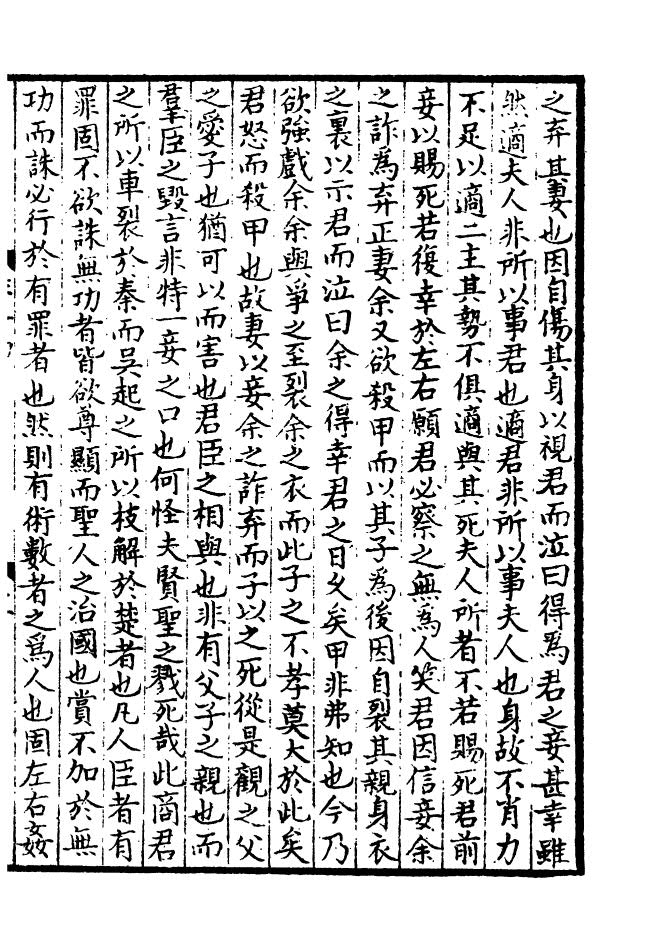 之弃其妻也因自傷其身以視君而泣曰得爲君之妾甚幸雖
然適夫人非所以事君也適君非所以事夫人也身故不肖力
不足以適二主其勢不俱適與其死夫人所者不若賜死君前
妾以賜死若復幸於左右願君必察之無爲人笑君因信妾余
之詐爲弃正妻余又欲殺甲而以其子爲後因自裂其親身衣
之裏以示君而泣曰余之得幸君之日乆矣甲非弗知也今乃
欲強戲余余與爭之至裂余之衣而此子之不孝莫大於此矣
君怒而殺甲也故妻以妾余之詐弃而子以之死從是觀之父
之愛子也猶可以而害也君臣之相與也非有父子之親也而
羣臣之毀言非特一妾之口也何怪夫賢聖之戮死哉此商君
之所以車裂於秦而吳起之所以枝解於楚者也凡人臣者有
罪固不欲誅無功者皆欲尊顯而聖人之治國也賞不加於無
功而誅必行於有罪者也然則有術數者之爲人也固左右姦